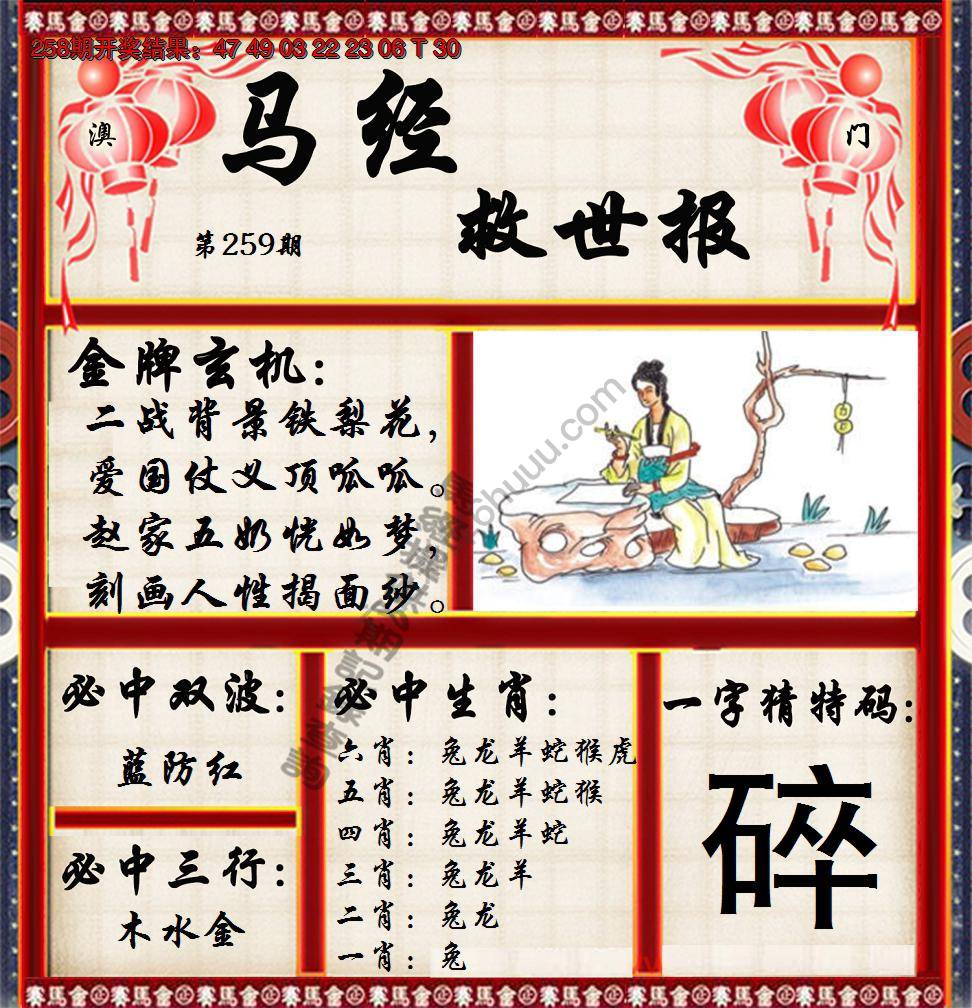 258期开奖结果：47 49 03 22 23 06 T 30
澳
门
马经
救世报
第259期
金牌玄机：
二战背景铁梨花，
爱国仗义顶呱呱。
赵家五奶恍如梦，
刻画人性揭面纱。
必中双波：
蓝防红
必中三行：
木水金
必中生肖：
六肖：兔龙羊蛇猴虎
五肖：兔龙羊蛇猴
四肖：兔龙羊蛇
三肖：兔龙羊
二肖：兔龙
一肖：兔
一字猜特码：
碎